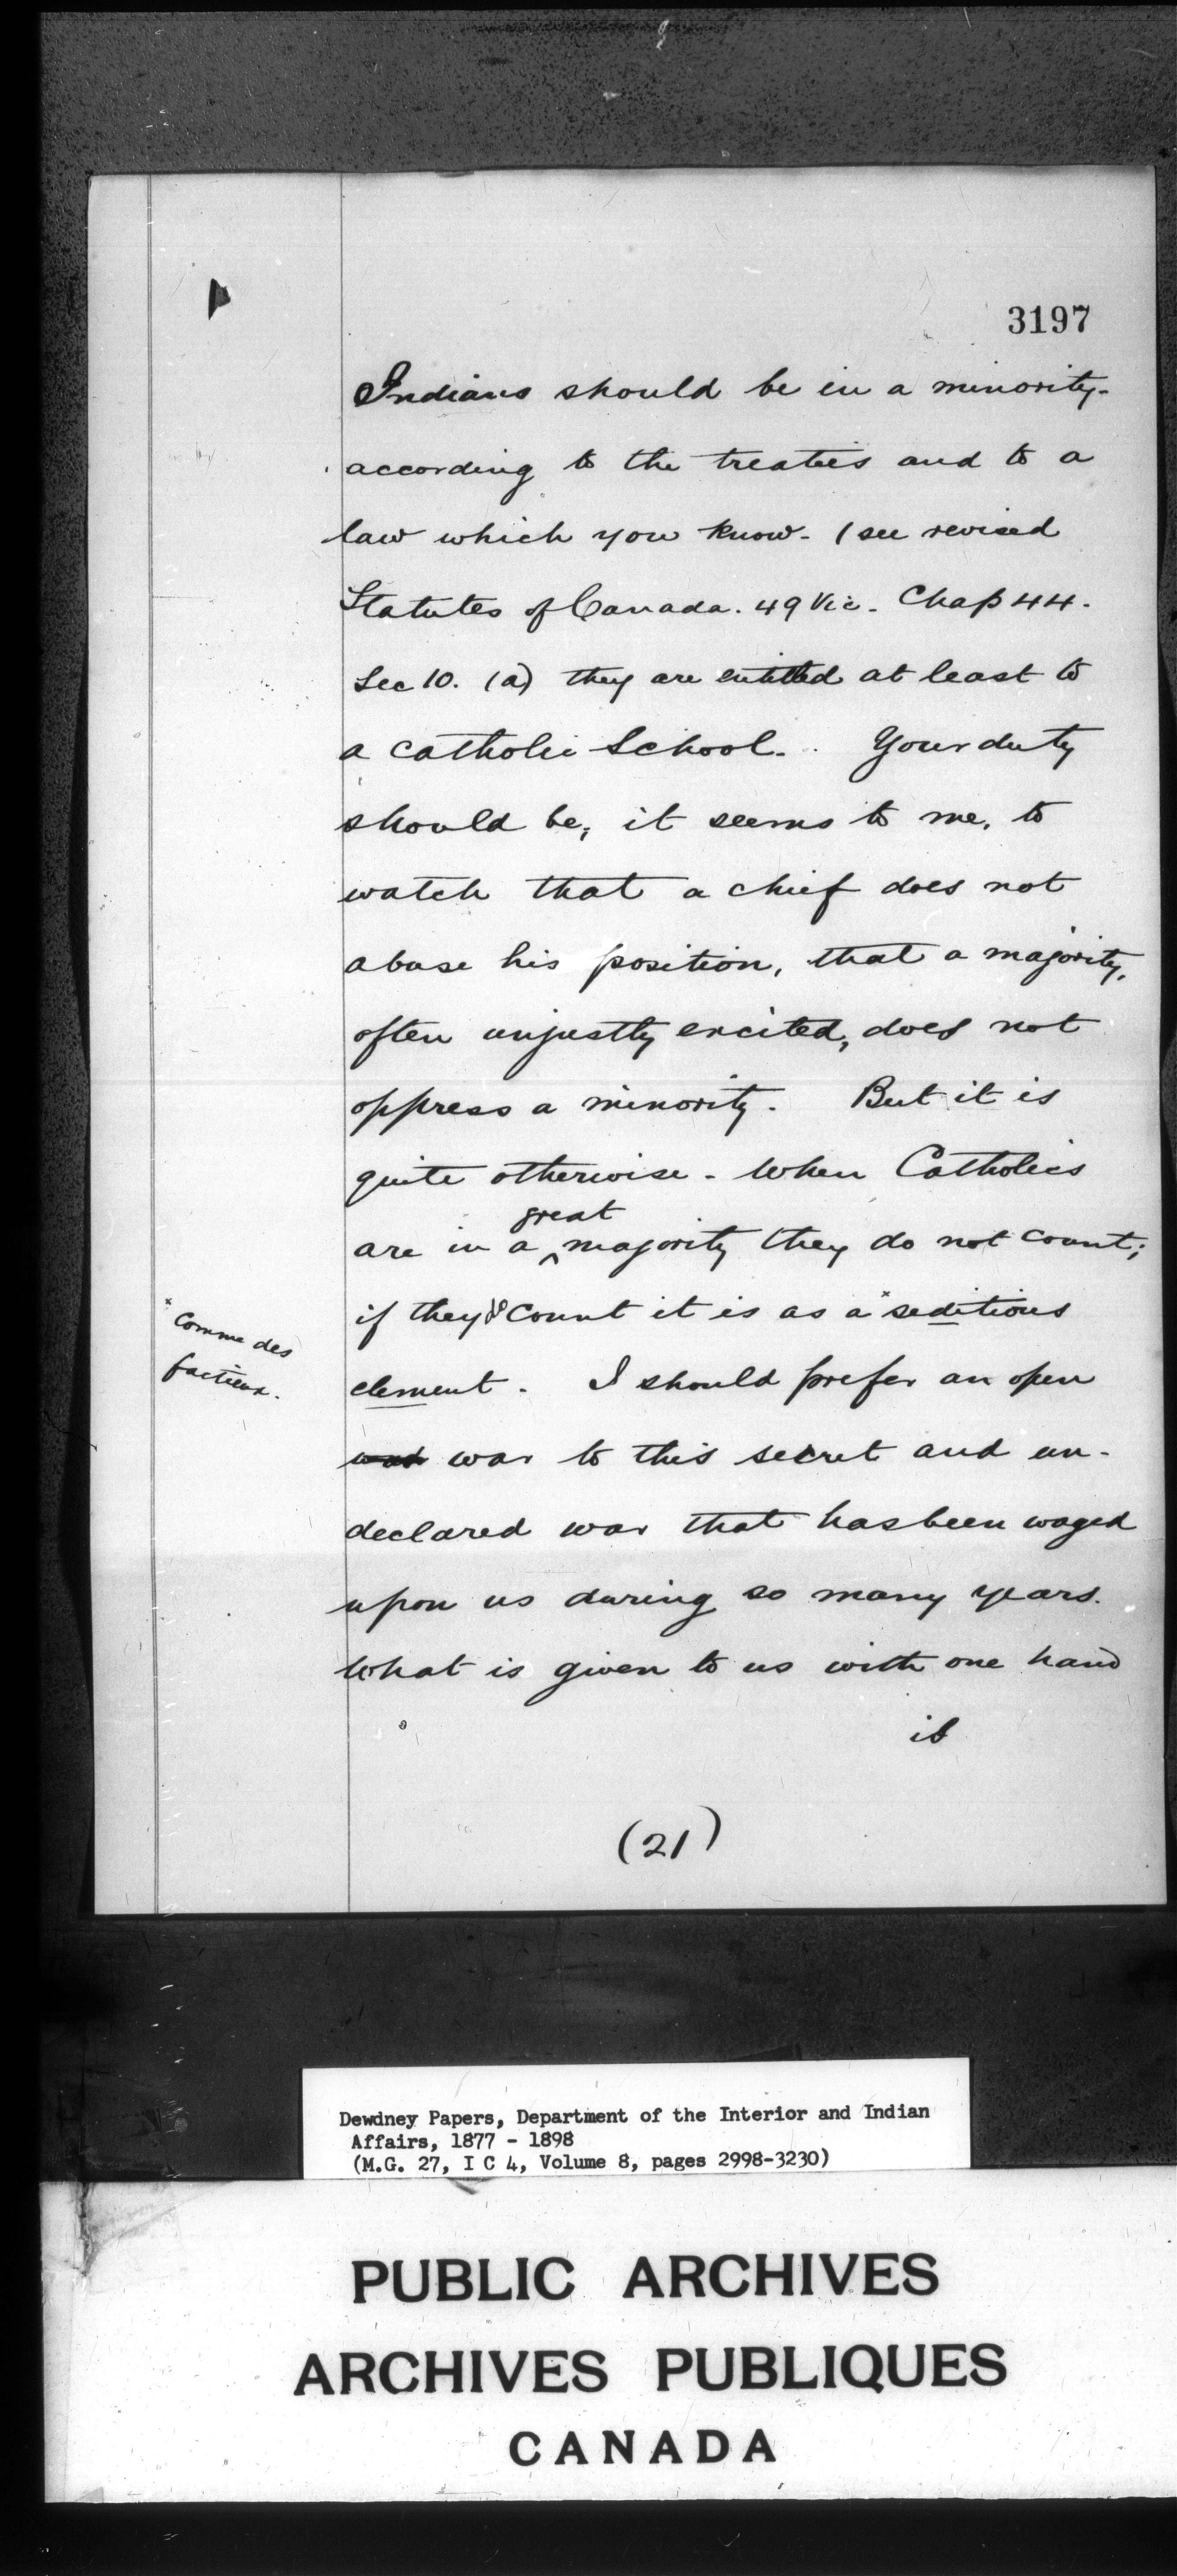 3197
Indians should be in a minority -
according to the treaties and to a
law which you know - (see revised
Statutes of Canada. 49 Vic. Chap 44.
Sec 10. (a) they are entitled at least to
a catholic School. Your duty
should be, it seems to me, to
watch that a chief does not
abuse his position, that a majority,
often unjustly excited, does not
oppress a minority. But it is
quite otherwise - When Catholics
great
are in a ^ majority they do not count;
if they do count it is as a x seditious
x Comme des
factieux.
element. I should prefer an open
war to this secret and un-
declared war that has been waged
upon us during so many years.
What is given to us with one hand
is
(21)
Dewdney Papers, Department of the Interior and Indian
Affairs, 1877 - 1898
(M.G. 27, I C 4, Volume 8, pages 2998-3230)
PUBLIC ARCHIVES
ARCHIVES PUBLIQUES
CANADA